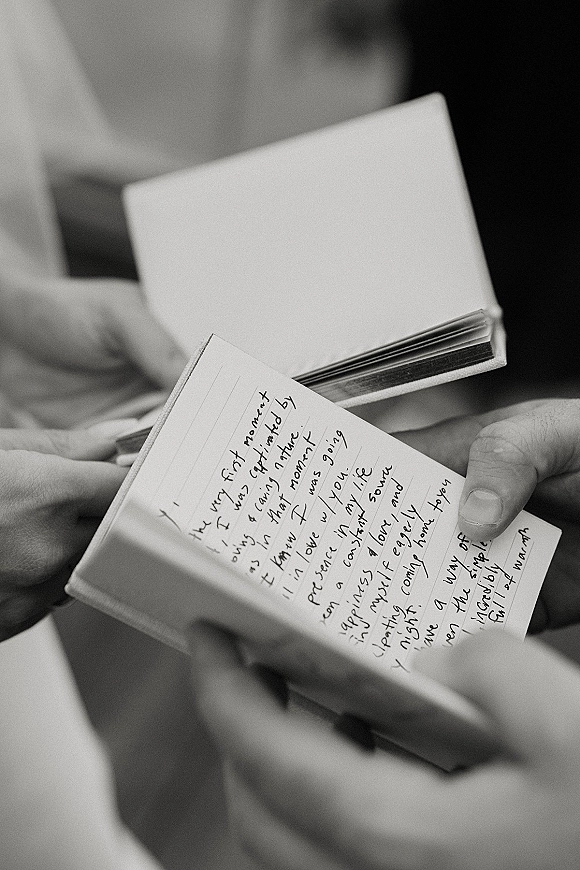 y,
the very first moment
, I was captivated by
oving & caring nature.
as in that moment
t knew I was going
ll in love w/ you.
presence in my life
een a constant source
happiness & love, and
ing myself eagerly
cipating coming home to you
y night.
have a way of
ven the simple
incredibly
full of warmth